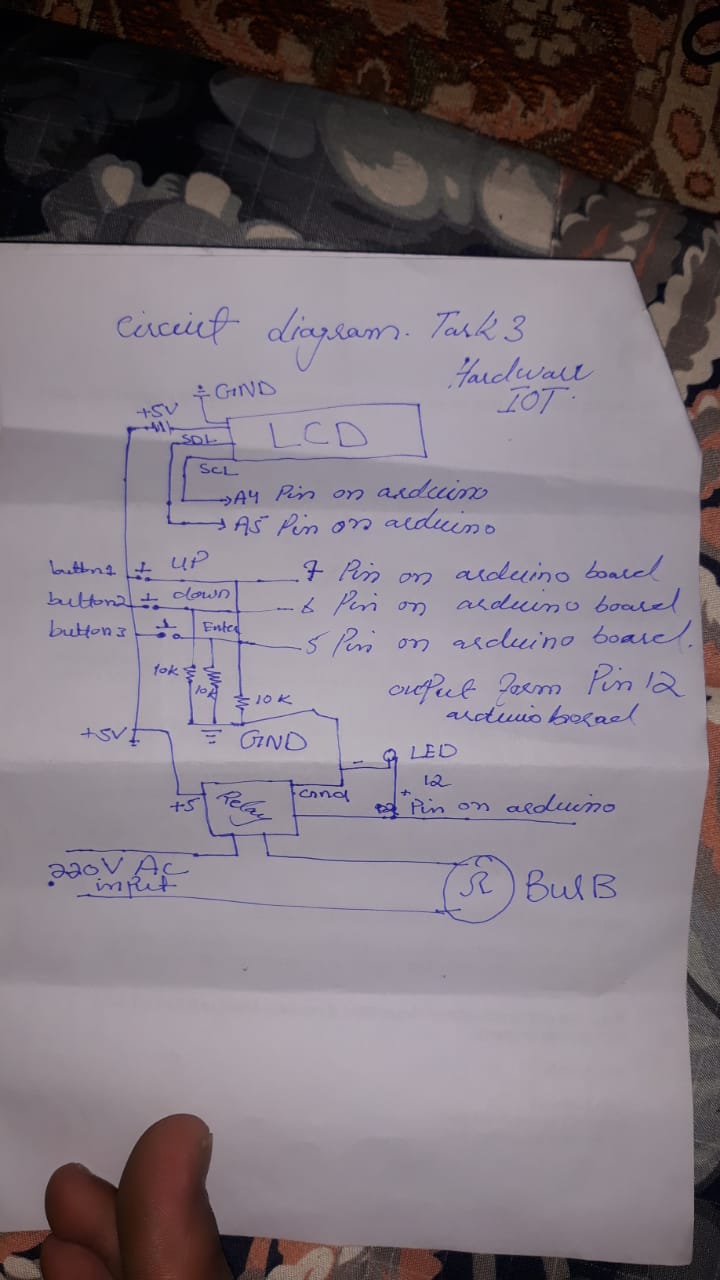 Circuit diagram. Task 3
Hardware
IOT.
GND
+5V
LCD
SDL
SCL
A4 Pin on arduino
A5 Pin on arduino
button1 UP 7 Pin on arduino board
button2 down 6 Pin on arduino board
button3 Enter 5 Pin on arduino board.
10k 10k 10K
output form Pin 12
arduino borad
+5V GND
LED
-
12
+5 Relay Gnd + Pin on arduino
220V AC
input
Ω BulB